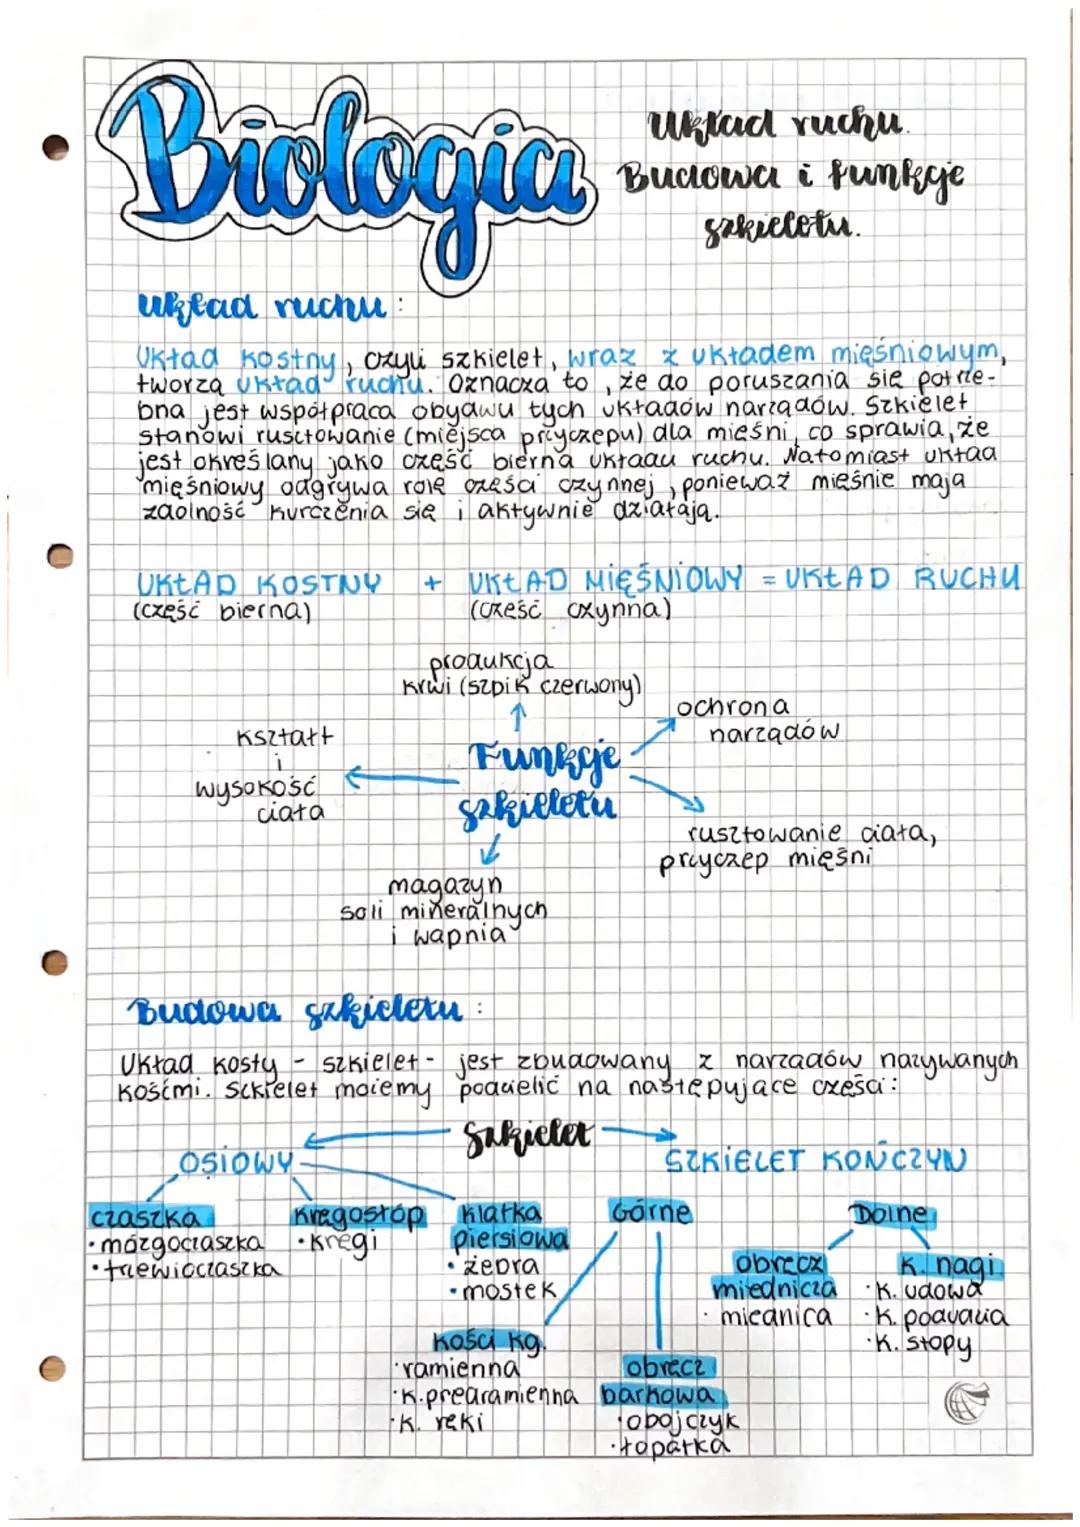 Biologia
Układ ruchu.
Budowa i funkcje
szkieletu.
układ ruchu:
Układ kostny, czyli szkielet, wraz z układem mięśniowym,
tworzą układ ruchu. Oznacza to, że do poruszania się potrze-
bna jest współpraca obydwu tych układów narządów. Szkielet
stanowi rusztowanie (miejsca przyczepu) dla mięśni, co sprawia, że
jest określany jako część bierna układu ruchu. Natomiast układ
mięśniowy odgrywa rolę części czynnej, ponieważ mięśnie mają
zdolność kurczenia się i aktywnie działają.
UKŁAD KOSTNY + UKŁAD MIĘŚNIOWY = UKŁAD RUCHU
(część bierna) (część czynna)
produkcja
krwi (szpik czerwony)
ochrona
narządów
kształt
i
wysokość
ciała
Funkcje
szkieletu
rusztowanie ciała,
przyczep mięśni
magazyn
soli mineralnych
i wapnia
Budowa szkieletu:
Układ kosty - szkielet - jest zbudowany z narządów nazywanych
kośćmi. Szkielet możemy podzielić na następujące części:
Szkielet
OSIOWY
SZKIELET KOŃCZYN
czaszka
• mózgoczaszka
• trzewioczaszka
Kręgosłóp
• kręgi
klatka
piersiowa
• żebra
• mostek
Górne
Dolne
kości kg.
• ramienna
• k. predramienna
• k. ręki
obręcz
barkowa
• obojczyk
• łopatka
obręcz
miednicza
• miednica
k. nagi
• k. udowa
• k. podudzia
• k. stopy